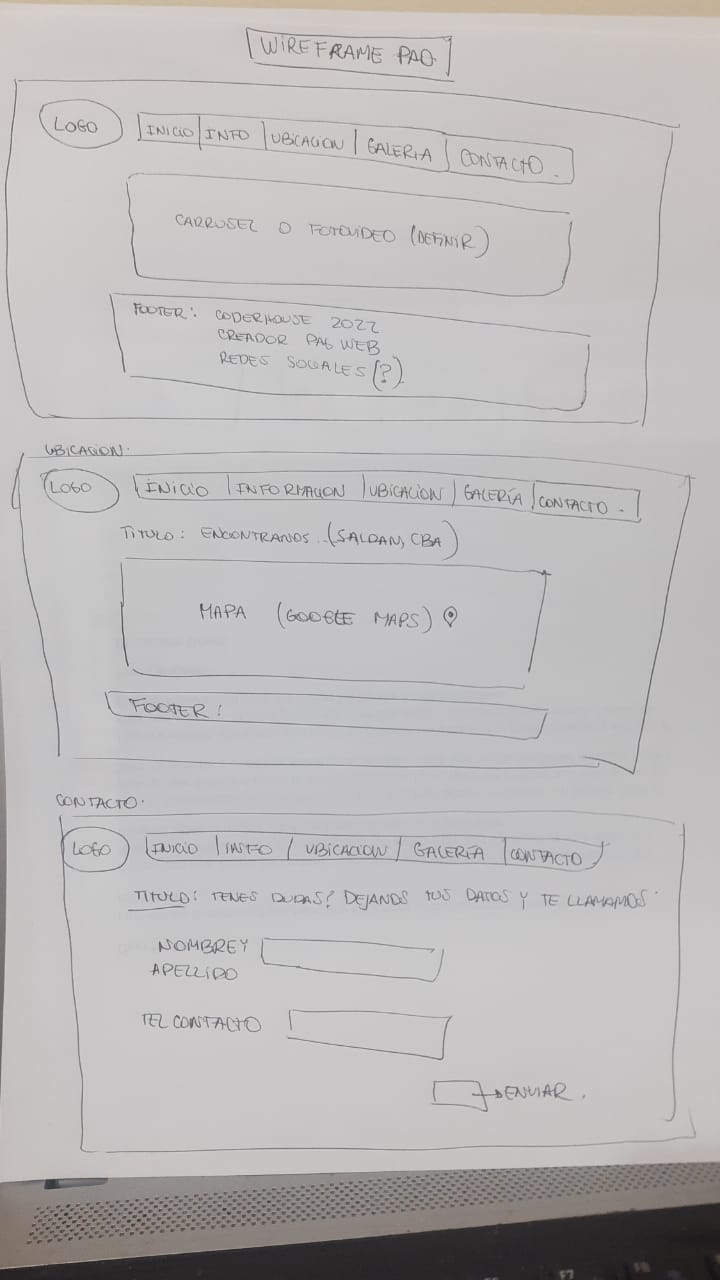 WIREFRAME PAG.
LOGO
INICIO INFO UBICACION GALERIA CONTACTO.
CARRUSEL O FOTO/VIDEO (DEFINIR)
FOOTER: CODERHOUSE 2022
CREADOR PAG WEB
REDES SOCIALES (?)
UBICACION.
LOGO
INICIO INFORMACION UBICACION GALERÍA CONTACTO.
TITULO: ENCONTRANOS.. (SALDAN, CBA)
MAPA (GOOGLE MAPS)
FOOTER:
CONTACTO.
LOGO
INICIO INFO UBICACION GALERÍA CONTACTO
TITULO: TENES DUDAS? DEJANOS TUS DATOS Y TE LLAMAMOS.
NOMBRE Y
APELLIDO
TEL CONTACTO
ENVIAR.
F7
F8